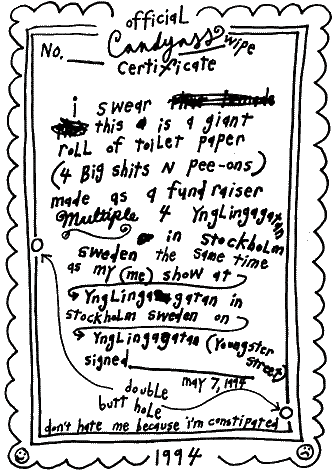 official
Candyass wipe
No. ___ certificate
i swear
this is a giant
roll of toilet paper
(4 Big shits N pee-ons)
made as a fundraiser
Multiple 4 Ynglingagatan
in Stockholm
Sweden the same time
as my (me) show at
Ynglingagatan in
Stockholm Sweden on
Ynglingagatan (Youngster
Street)
signed
may 7, 1994
double
butt hole
don't hate me because i'm constipated
1994